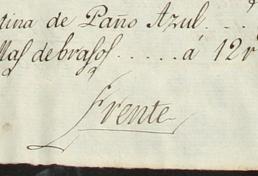 tina de Paño Azul . . .
llas de brasos . . . . . á 12 r
Frente